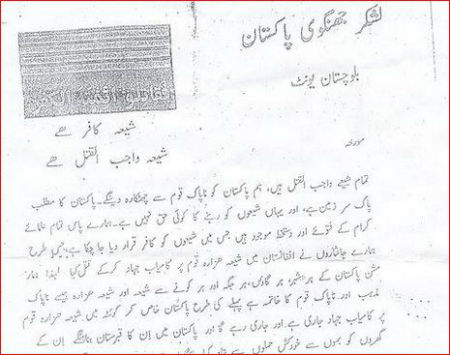 لشکر جھنگوی پاکستان
بلوچستان یونٹ
شیعہ کافر ھے
شیعہ واجب القتل ھے
مورخہ
تمام شیعے واجب القتل ہیں، ہم پاکستان کو ناپاک قوم سے چھٹکارہ دینگے۔پاکستان کا مطلب
پاک سر زمین ہے، اور یہاں شیعوں کو رہنے کا کوئی حق نہیں ہے۔ہمارے پاس تمام علمائے
کرام کے فتوٰے اور دستخط موجود ہیں جس میں شیعوں کو کافر قرار دیا جا چکا ہے،جس طرح
ہمارے جانثاروں نے افغانستان میں شیعہ ھزارہ قوم پر کامیاب جہاد کرکے قتل کیا لہٰذا ہمارا
مشن پاکستان کے ہر شہر، ہر گاؤں، ہر جگہ اور ہر کونے سے شیعہ اور شیعہ ھزارہ جیسے ناپاک
مذہب اور ناپاک قوم کا خاتمہ ہے پہلے کی طرح پاکستان خاص کر کوئٹہ میں شیعہ ھزارہ قوم
پر کامیاب جہاد جاری ہے۔اور جاری رہے گا اور پاکستان میں ان کا قبرستان بنائینگے ان کے
گھروں کو بموں سے خودکش حملوں سے